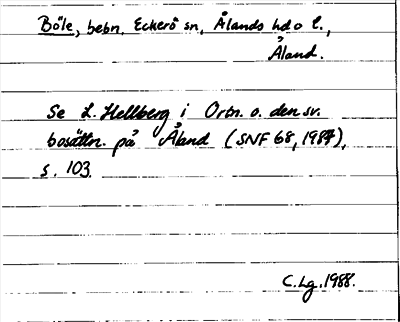 Böle, bebn. Eckerö sn, Ålands hd o l.,
Åland.
Se L. Hellberg i Ortn. o. den sv.
bosättn. på Åland (SNF 68, 1987),
s. 103
C. Lg. 1988.